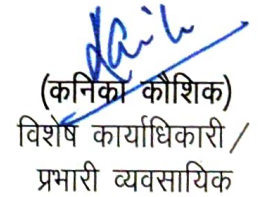 (कनिका कौशिक)
विशेष कार्याधिकारी/
प्रभारी व्यवसायिक